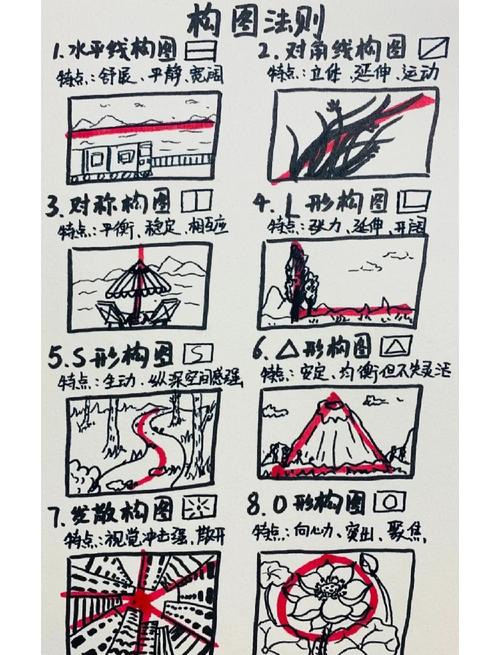 构图法则
1.水平线构图
特点:舒展、平静、宽阔
2.对角线构图
特点:立体、延伸、运动
3.对称构图
特点:平衡、稳定、相互应
4.L形构图
特点:张力、延伸、开阔
5.S形构图
S
特点:生动、纵深空间感强
6.△形构图
特点:安定、均衡但不失灵活
7.发散构图
特点:视觉冲击强、散开
8.O形构图
特点:向心力、突出、聚焦、